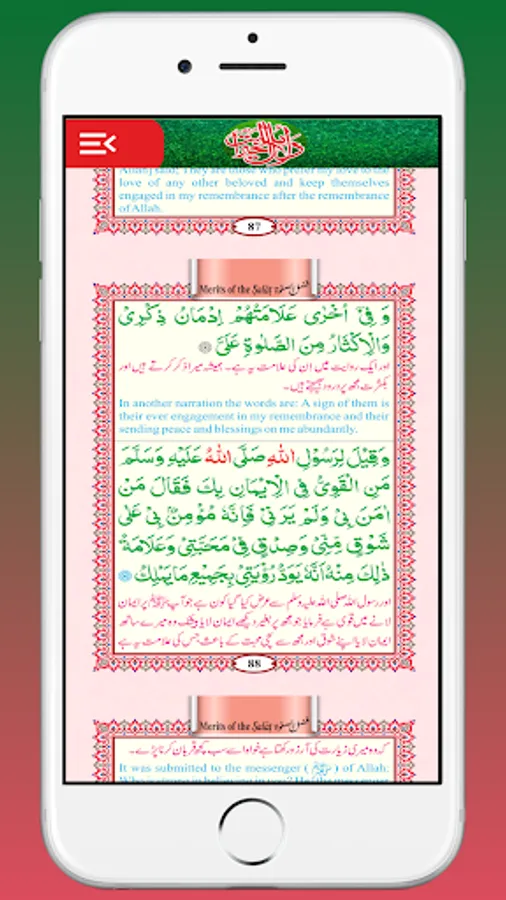 دلائل الخیرات
Allah] said; They are those who prefer my love to the
love of any other beloved and keep themselves
engaged in my remembrance after the remembrance
of Allah.
87
Merits of the Ṣalāt
وَ فِیْ اُخْرٰی عَلَامَتُهُمْ اِدْمَانُ ذِکْرِیْ
وَالْاِکْثَارُ مِنَ الصَّلٰوةِ عَلَیَّ
اور ایک روایت میں اِن کی علامت یہ ہے۔ ہمیشہ میرا ذکر کرتے ہیں اور
بکثرت مجھ پر درود بھیجتے ہیں۔
In another narration the words are: A sign of them is
their ever engagement in my remembrance and their
sending peace and blessings on me abundantly.
وَقِیْلَ لِرَسُوْلِ اللّٰهِ صَلَّی اللّٰهُ عَلَیْهِ وَسَلَّمَ
مَنِ الْقَوِیُّ فِی الْاِیْمَانِ بِكَ فَقَالَ مَنْ
اٰمَنَ بِیْ وَلَمْ یَرَنِیْ فَاِنَّهٗ مُؤْمِنٌۢ بِیْ عَلٰی
شَوْقٍ مِّنِّیْ وَصِدْقٍ فِیْ مَحَبَّتِیْ وَعَلَامَةُ
ذٰلِكَ مِنْهُ اَنَّهٗ یَوَدُّ رُؤْیَتِیْ بِجَمِیْعِ مَا یَمْلِكُ
اور رسول اللہ صلی اللہ علیہ وسلم سے عرض کیا گیا کون ہے جو آپ ﷺ پر ایمان
لانے میں قوی ہے فرمایا جو مجھ پر بغیر دیکھے ایمان لایا وہ بیشک وہ میرے ساتھ
ایمان لایا اپنے شوق اور مجھ سے سچی محبت کے باعث جس کی علامت یہ ہے
88
Merits of the Ṣalāt
کہ وہ میری زیارت کی آرزو رکھتا ہے خواہ اسے سب کچھ قربان کرنا پڑے۔
It was submitted to the messenger (ﷺ) of Allah: